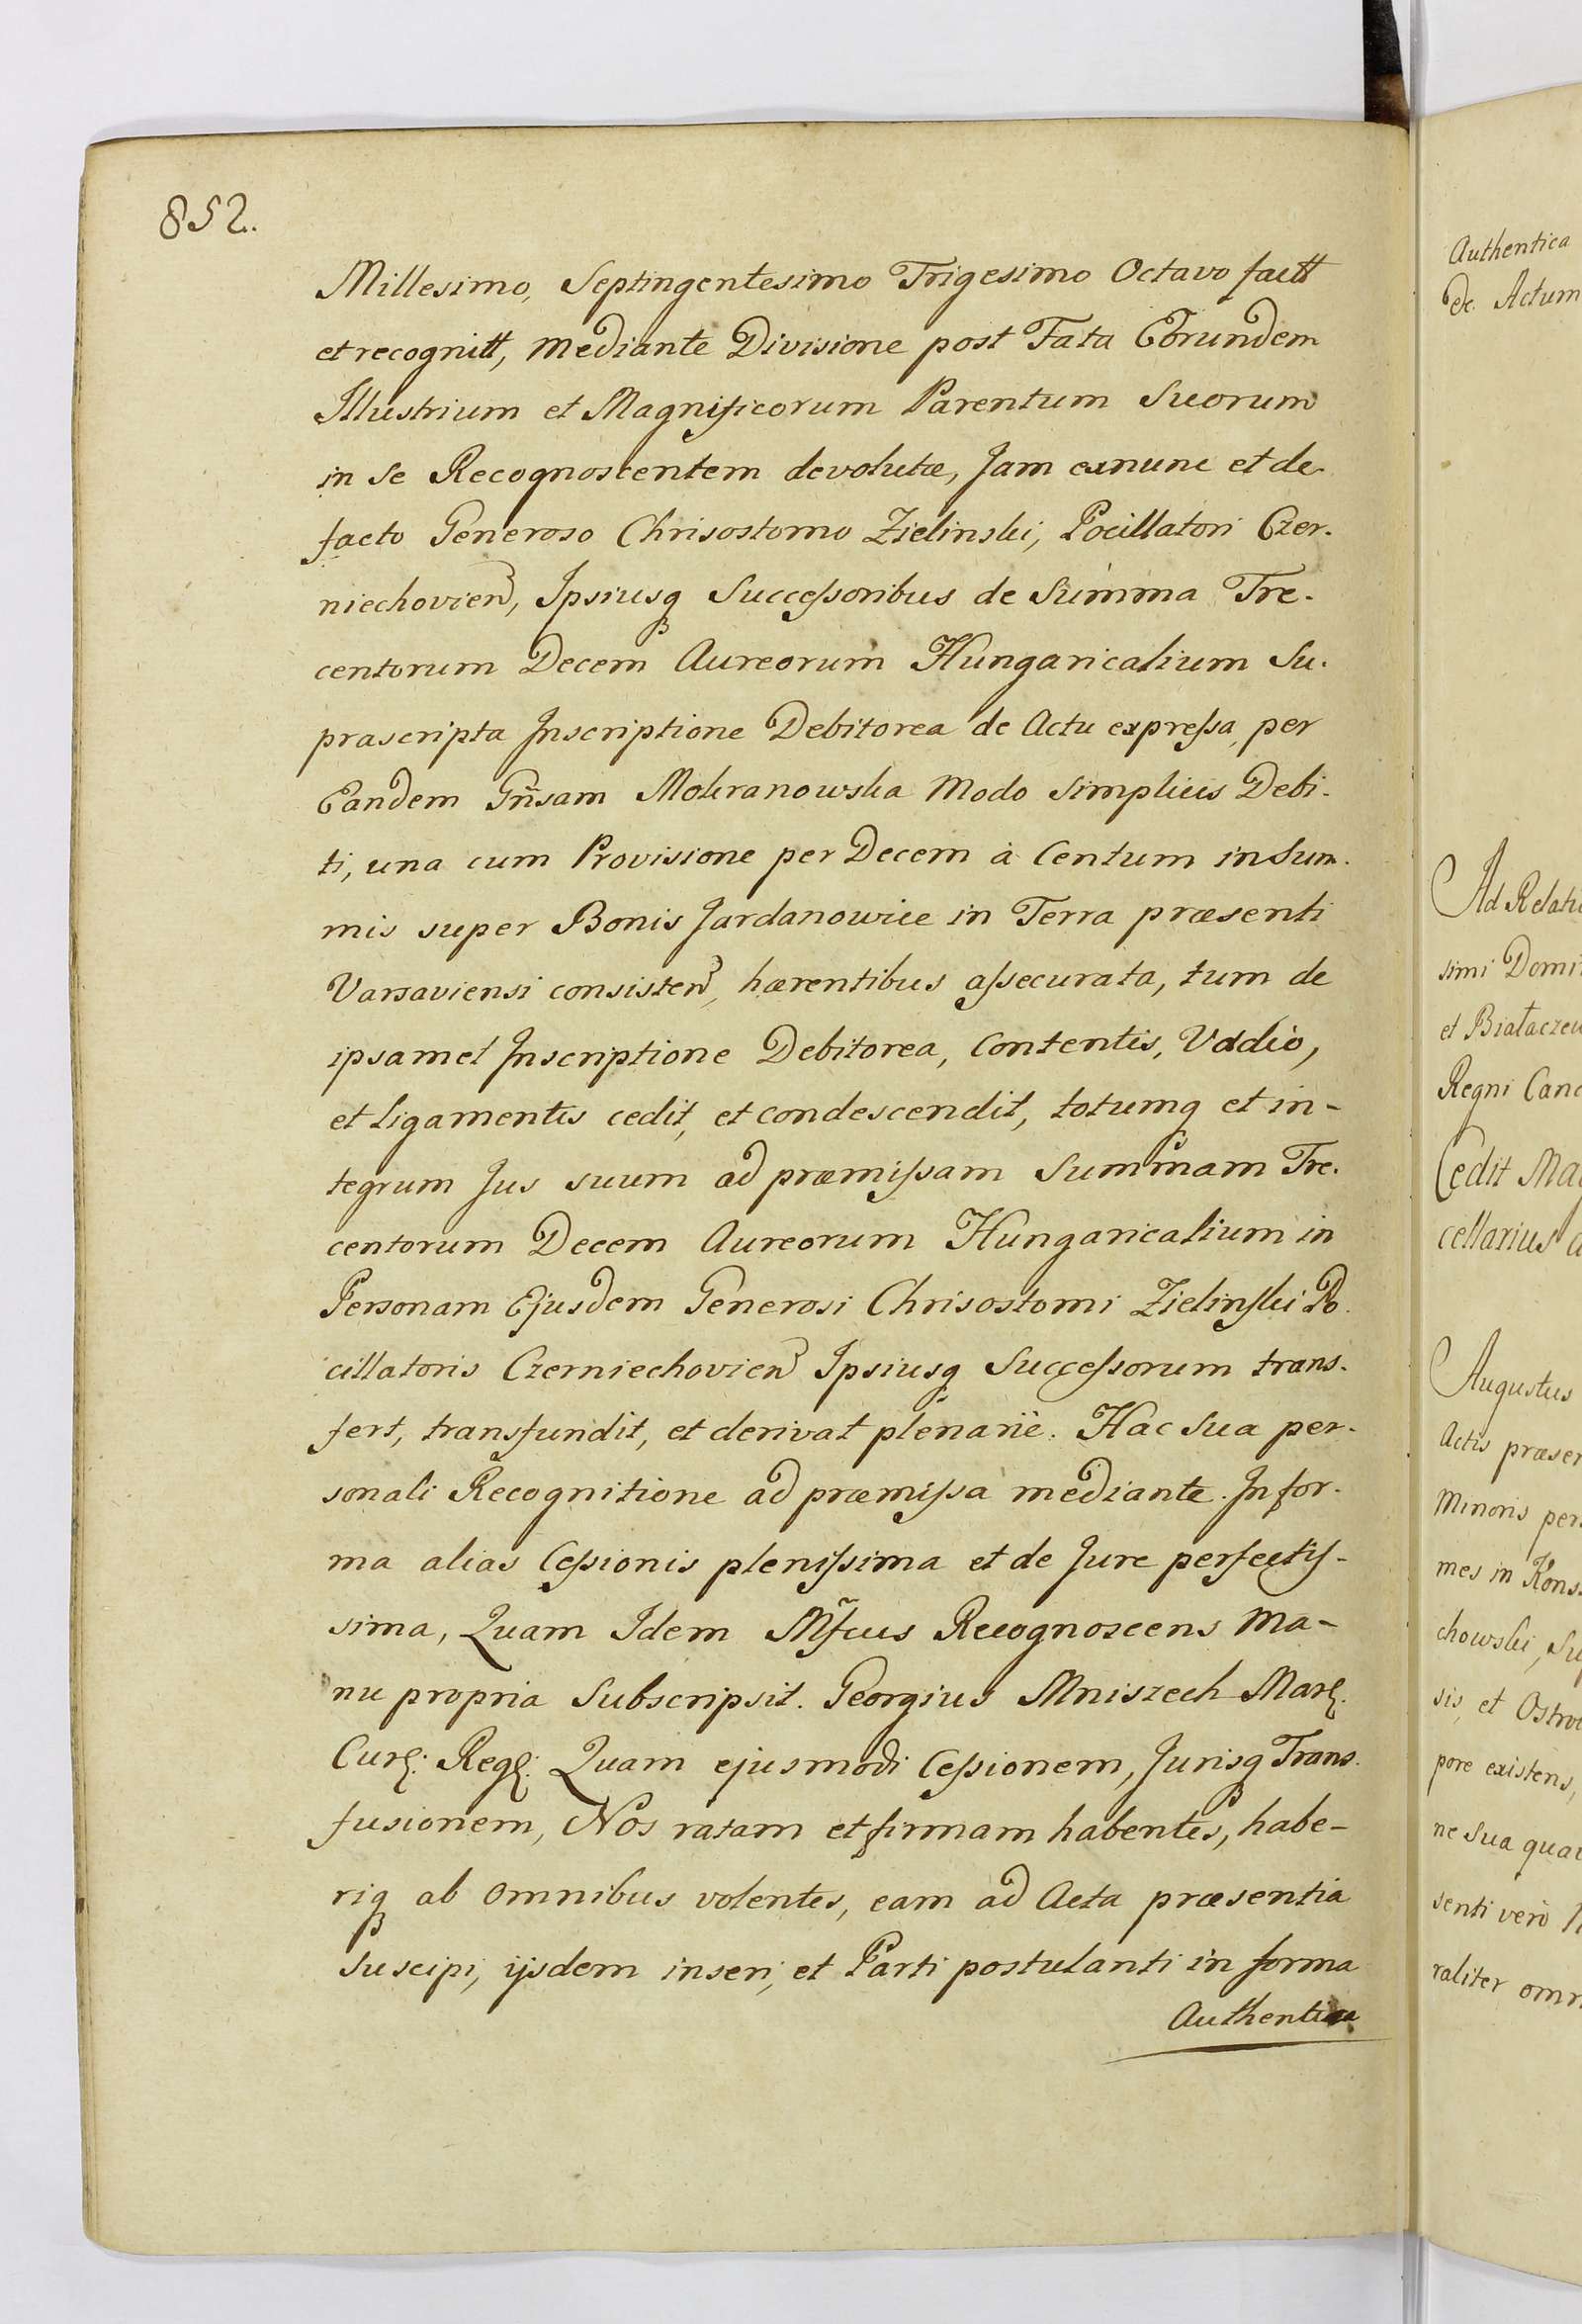 852.
Millesimo, Septingentesimo Trigesimo Octavo factt
et recognitt, mediante Divisione post Fata Eorundem
Illustrium et Magnificorum Parentum Suorum
in se Recognoscentem devolutæ, Jam exnunc et de
facto Generoso Chrisostomo Zielinski, Pocillatori Czer.
niechovien, Ipsiusq Successoribus de Summa Tre.
centorum Decem Aureorum Hungaricalium Su.
prascripta Inscriptione Debitorea de Actu expressa, per
Eandem Gñsam Mokranowska modo simplicis Debi.
ti, una cum Provisione per Decem à Centum in Sum.
mis super Bonis Jardanowice in Terra præsenti
Varsaviensi consisten, hærentibus assecurata, tum de
ipsamet Inscriptione Debitorea, Contentis, Vadio,
et Ligamentis cedit, et condescendit, totumq et in-
tegrum Jus suum ad præmissam Summam Tre.
centorum Decem Aureorum Hungaricalium in
Personam Ejusdem Generosi Chrisostomi Zielinski Po.
cillatoris Czerniechovien Ipsiusq Successorum trans.
fert, transfundit, et derivat plenarie. Hac Sua per.
sonali Recognitione ad præmissa mediante. In for.
ma alias Cessionis plenissima et de Jure perfectis-
sima, Quam Idem Mfcus Recognoscens Ma-
nu propria Subscripsit. Georgius Mniszech Mar.
Cur. Reg. Quam ejusmodi Cessionem, Jurisq Trans.
fusionem, Nos ratam et firmam habentes, habe-
riq ab omnibus volentes, eam ad Acta præsentia
suscipi, ijsdem inseri, et Parti postulanti in forma
Authentica
Authentica
de. Actum
Ad Relati
simi Domi
et Białaczew
Regni Canc
Cedit Mag
cellarius
Augustus
Actis præsen
Minoris per
mes in Kons.
chowski, Su
sis, et Ostro
pore existens,
ne Sua qua
senti vero
raliter omn